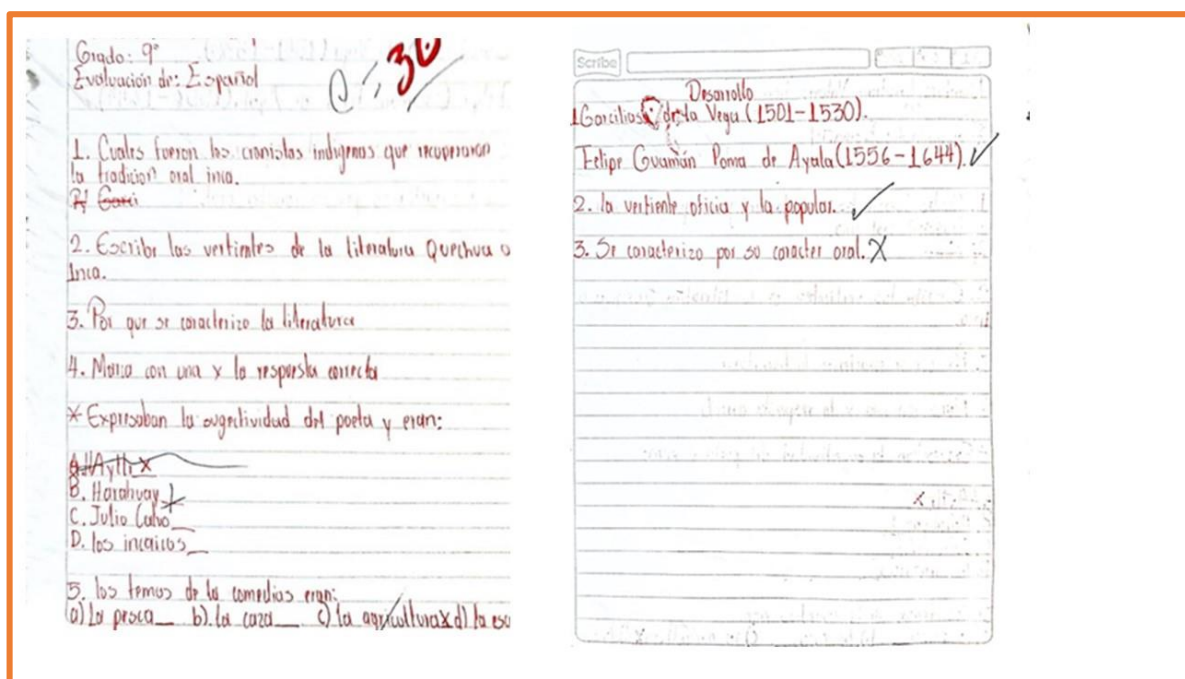 Grado: 9°
Evaluación de: Español
C = 30
1. Cuales fueron los cronistas indigenas que recuperaron
la tradicion oral inca.
R/ Garci
2. Escribe las vertientes de la literatura Quechua o
Inca.
3. Por que se caracterizo la literatura
4. Marca con una x la respuesta correcta
* Expresaban la sugetividad del poeta y eran:
B. Harahuay x
C. Julio Calvo_
D. los incaicos_
5. los temas de la comedias eran:
a) La pesca_ b). la caza_ c) la agricultura x d) la esc
Scribe
Desarrollo
1 Garcilias de la Vega (1501-1530).
Felipe Guamán Poma de Ayala (1556-1644). ✓
2. la vertiente oficia y la popular. ✓
3. Se caracterizo por so caracter oral. X